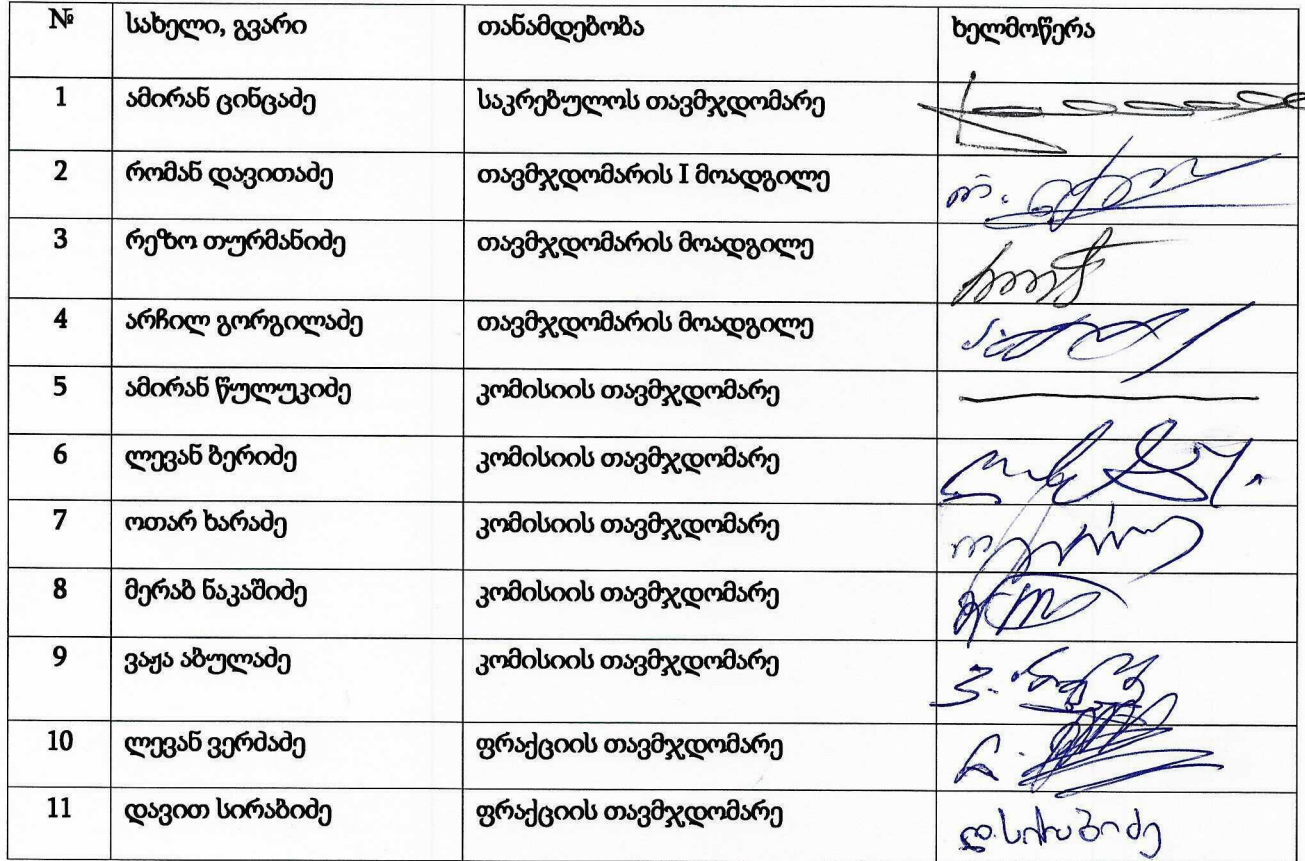 № სახელი, გვარი თანამდებობა ხელმოწერა
1 ამირან ცინცაძე საკრებულოს თავმჯდომარე
2 რომან დავითაძე თავმჯდომარის I მოადგილე
3 რეზო თურმანიძე თავმჯდომარის მოადგილე
4 არჩილ გორგილაძე თავმჯდომარის მოადგილე
5 ამირან წულუკიძე კომისიის თავმჯდომარე
6 ლევან ბერიძე კომისიის თავმჯდომარე
7 ოთარ ხარაძე კომისიის თავმჯდომარე
8 მერაბ ნაკაშიძე კომისიის თავმჯდომარე
9 ვაჟა აბულაძე კომისიის თავმჯდომარე
10 ლევან ვერძაძე ფრაქციის თავმჯდომარე
11 დავით სირაბიძე ფრაქციის თავმჯდომარე დ.სირაბიძე